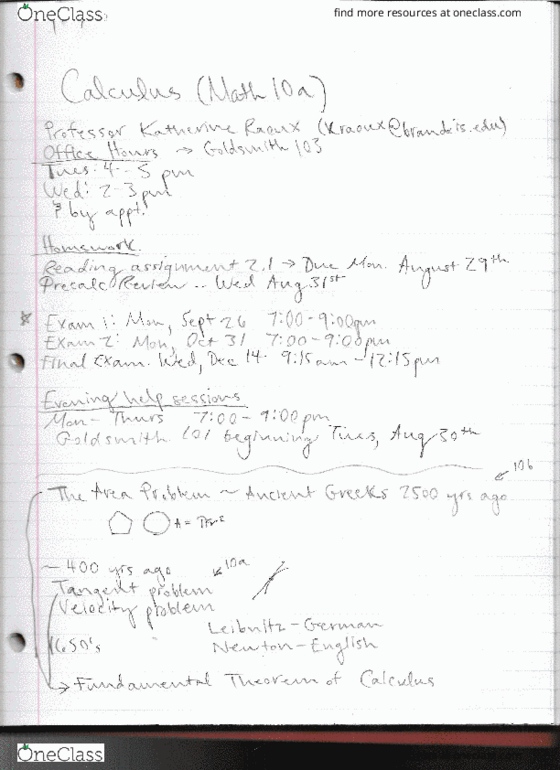 OneClass
find more resources at oneclass.com
Calculus (Math 10a)
Professor Katherine Raoux (kraoux@brandeis.edu)
Office Hours → Goldsmith 103
Tues: 4-5 pm
Wed: 2-3pm
& by appt!
Homework.
Reading assignment 2.1 → Due Mon. August 29th
Precalc Review .. Wed Aug 31st
Exam 1: Mon, Sept 26 7:00-9:00pm
Exam 2: Mon, Oct 31 7:00-9:00pm
Final Exam. Wed, Dec 14. 9:15am-12:15pm
Evening help sessions
Mon-Thurs 7:00-9:00pm
Goldsmith 101 beginning Tues, Aug 30th
10b
The Area Problem ~ Ancient Greeks 2500 yrs ago
A = πr²
~400 yrs ago 10a
Tangent problem
Velocity problem
Leibnitz-German
1650's Newton-English
→ Fundamental Theorem of Calculus
OneClass